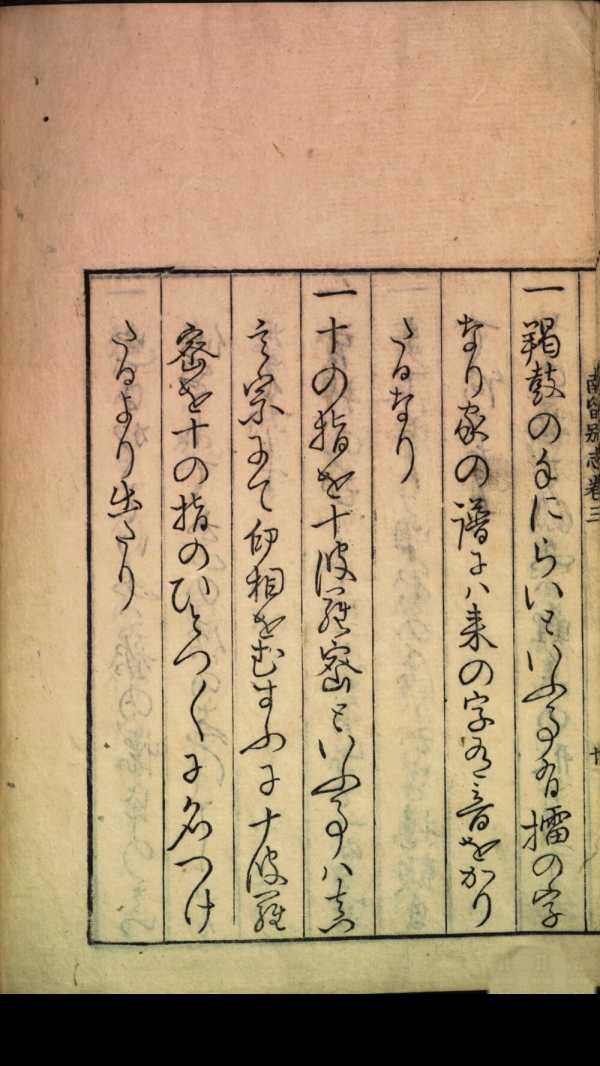 南留別志巻三
一羯鼓の手にらいといふ事有擂の字
なり家の譜には来の字乃音をかり
たるなり
一十の指を十波羅密といふ事ハ真
言宗にて印相をむすふに十波羅
密を十の指のひとつ〱に名つけ
たるより出たり